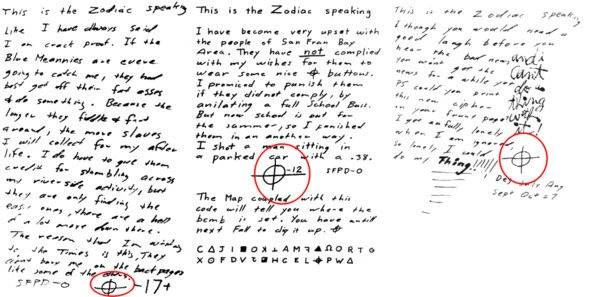 This is the Zodiac speaking
Like I have always said
I am crack proof. If the
Blue Meannies are evere
going to catch me, they had
best get off their fat asses
& do something. Because the
longer they fiddle & fart
around, the more slaves
I will collect for my after
life. I do have to give them
credit for stumbling across
my riverside activity, but
they are only finding the
easy ones, there are a hell
of a lot more down there.
The reason that I'm writing
to the Times is this, They
don't bury me on the back pages
like some of the others.
SFPD-0 -17+
This is the Zodiac speaking
I have become very upset with
the people of San Fran Bay
Area. They have not complied
with my wishes for them to
wear some nice ⌖ buttons.
I promiced to punish them
if they did not comply, by
anilating a full School Buss.
But now school is out for
the summer, so I punished
them in an another way.
I shot a man sitting in
a parked car with a .38.
⌖-12 SFPD-0
The Map coupled with this
code will tell you where the
bomb is set. You have untill
next Fall to dig it up. ⌖
This is the Zodiac speaking
I though you would need a
good laugh before you
hear the bad news
you won't get the
news for a while yet
PS could you print
this new cipher
in your frunt page?
I get awfully lonely
when I am ignored,
so lonely I could
do my Thing!!!!!!
and i can't do a thing with it!
Des July Aug
Sept Oct = 7